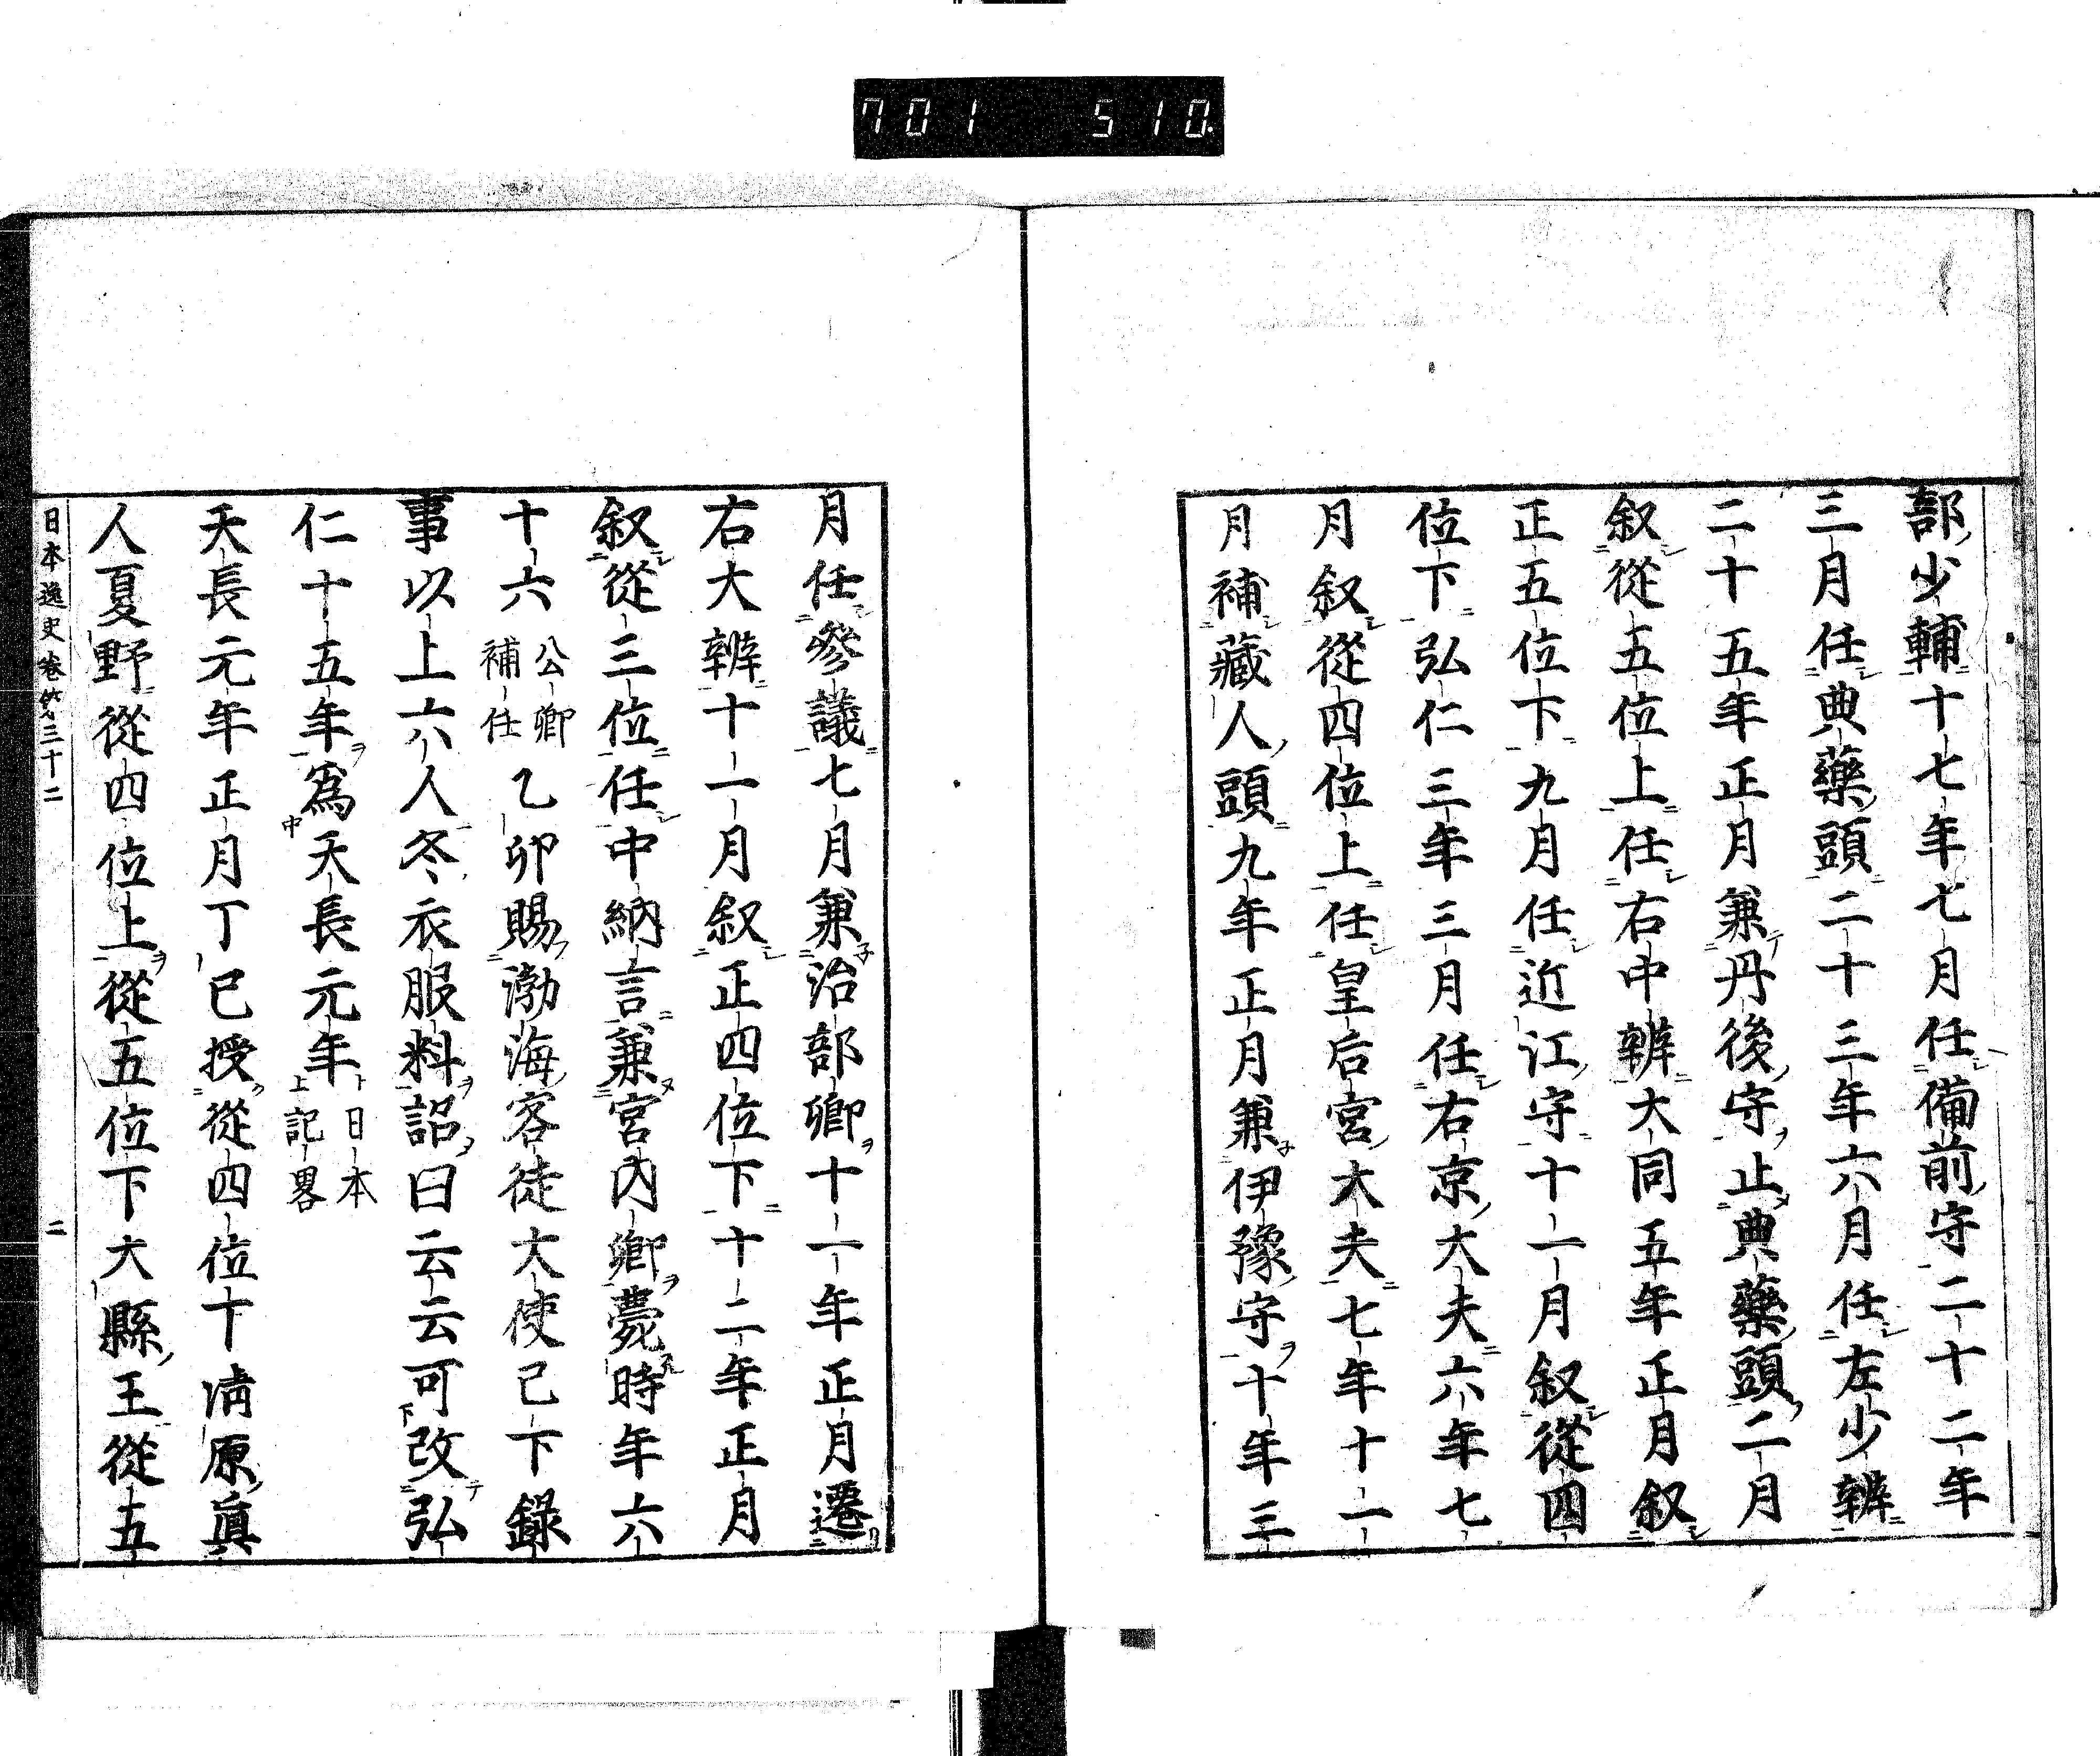 701 510.
部少輔十七年七月任備前守二十二年
三月任典藥頭二十三年六月任左少辨
二十五年正月兼丹後守止典藥頭二月
叙從五位上任右中辨大同五年正月叙
正五位下九月任近江守十一月叙從四
位下弘仁三年三月任右京大夫六年七
月叙從四位上任皇后宮大夫七年十一
月補藏人頭九年正月兼伊豫守十年三
月任參議七月兼治部卿十一年正月遷
右大辨十一月叙正四位下十二年正月
叙從三位任中納言兼宮內卿薨時年六
十六公卿補任乙卯賜渤海客徒大使已下錄
事以上六人冬衣服料詔曰云云可改弘
仁十五年爲天長元年日本記畧
天長元年正月丁巳授從四位下淸原眞
人夏野從四位上從五位下大縣王從五
日本逸史卷第三十二 二